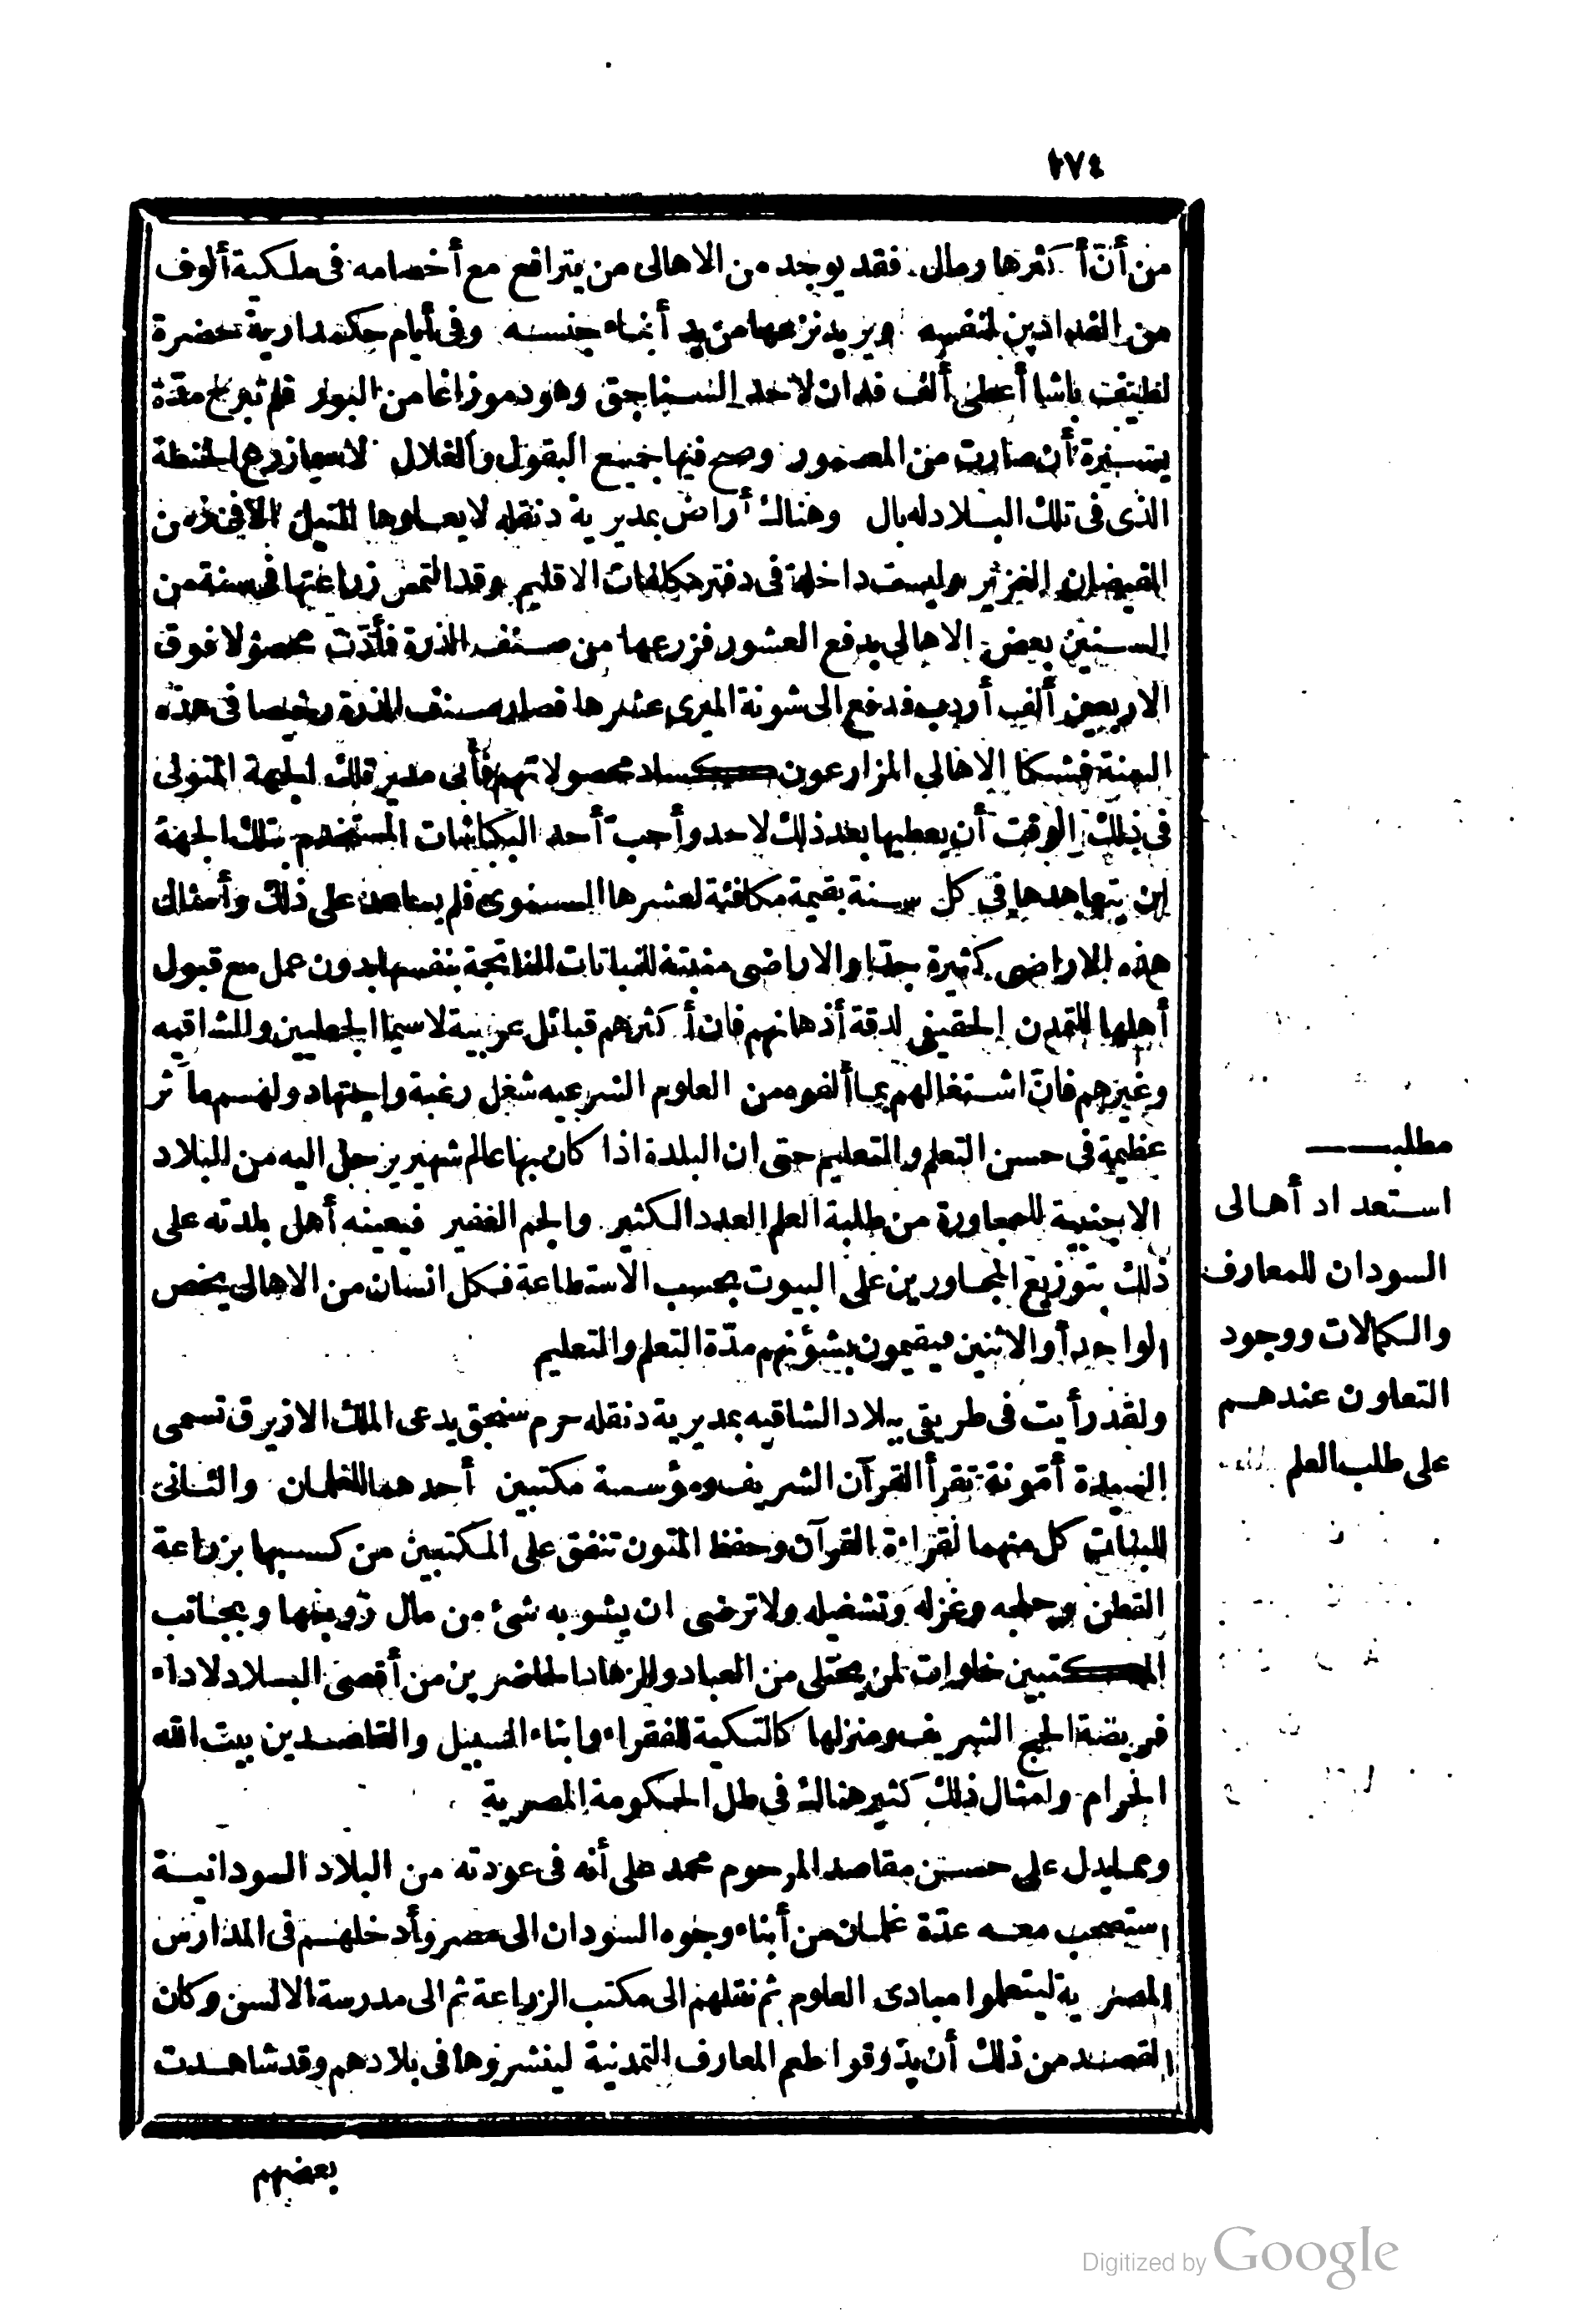 ٢٧٤
من أنّ أكثرها رمال. فقد يوجد من الاهالى من يترافع مع أخصامه فى ملكية ألوف
من الفدادين لنفسه ويريد نزعها من يد أبناء جنسه وفى أيام حكمدارية حضرة
لطيف باشا أعطى ألف فدان لاحد السناجق وهو دموزاغا من البور فلم تبرح مدّة
يسيرة أن صارت من المعمور وصح فيها جميع البقول والغلال لاسيما زرع الحنطة
الذى فى تلك البلاد له بال وهناك أراض بمديرية دنقله لا يعلوها النيل الا فى زمن
الفيضان الغزير وليست داخلة فى دفتر مكلفات الاقليم وقد التمس زراعتها فى سنة من
السنين بعض الاهالى بدفع العشور فزرعها من صنف الذرة فأدّت محصولا فوق
الاربعين ألف أردب فدفع الى شونة الميرى عشرها فصار صنف الذرة رخيصا فى هذه
السنة فشكا الاهالى المزارعون كساد محصولاتهم فأبى مدير تلك الجهة المتولى
فى ذلك الوقت أن يعطيها بعد ذلك لاحد وأحب أحد البكباشات المستخدم بتلك الجهة
ان يتعاهدها فى كل سنة بقيمة مكافئة لعشرها السنوى فلم يساعد على ذلك وأمثال
هذه الاراضى كثيرة جدّا والاراضى منبتة للنباتات الناتجة بنفسها بدون عمل مع قبول
أهلها للتمدن الحقيقى لدقة أذهانهم فان أكثرهم قبائل عربية لاسيما الجعليين والشاقيه
وغيرهم فانّ اشتغالهم بما ألفوه من العلوم الشرعيه شغل رغبة واجتهاد ولهم مآثر
عظيمة فى حسن التعلم والتعليم حتى ان البلدة اذا كان بها عالم شهير يرحل اليه من البلاد
الاجنبية للمجاورة من طلبة العلم العدد الكثير والجم الغفير فيعينه أهل بلدته على
ذلك بتوزيع المجاورين على البيوت بحسب الاستطاعة فكل انسان من الاهالى يخص
الواحد أو الاثنين فيقيمون بشؤنهم مدّة التعلم والتعليم
مطلب
استعداد أهالى
السودان للمعارف
والكمالات ووجود
التعاون عندهم
على طلب العلم
ولقد رأيت فى طريقى ببلاد الشاقيه بمديرية دنقله حرم سنجق يدعى الملك الازيرق تسمى
السيدة أمّونة تقرأ القرآن الشريف ومؤسسة مكتبين أحدهما للغلمان والثانى
للبنات كل منهما لقراءة القرآن وحفظ المتون تنفق على المكتبين من كسبها بزراعة
القطن وحلجه وغزله وتشغيله ولا ترضى ان يشوبه شئ من مال زوجها وبجانب
المكتبين خلوات لمن يختلى من العباد والزهاد الحاضرين من أقصى البلاد لاداء
فريضة الحج الشريف ومنزلها كالتكية للفقراء وابناء السبيل والقاصدين بيت الله
الحرام وامثال ذلك كثير هنالك فى ظل الحكومة المصرية
ومما يدل على حسن مقاصد المرحوم محمد على أنه فى عودته من البلاد السودانية
استصحب معه عدّة غلمان من أبناء وجوه السودان الى مصر وأدخلهم فى المدارس
المصرية ليتعلموا مبادى العلوم ثم نقلهم الى مكتب الزراعة ثم الى مدرسة الالسن وكان
القصد من ذلك أن يذوقوا طعم المعارف التمدنية لينشروها فى بلادهم وقد شاهدت
بعضهم
Digitized by Google